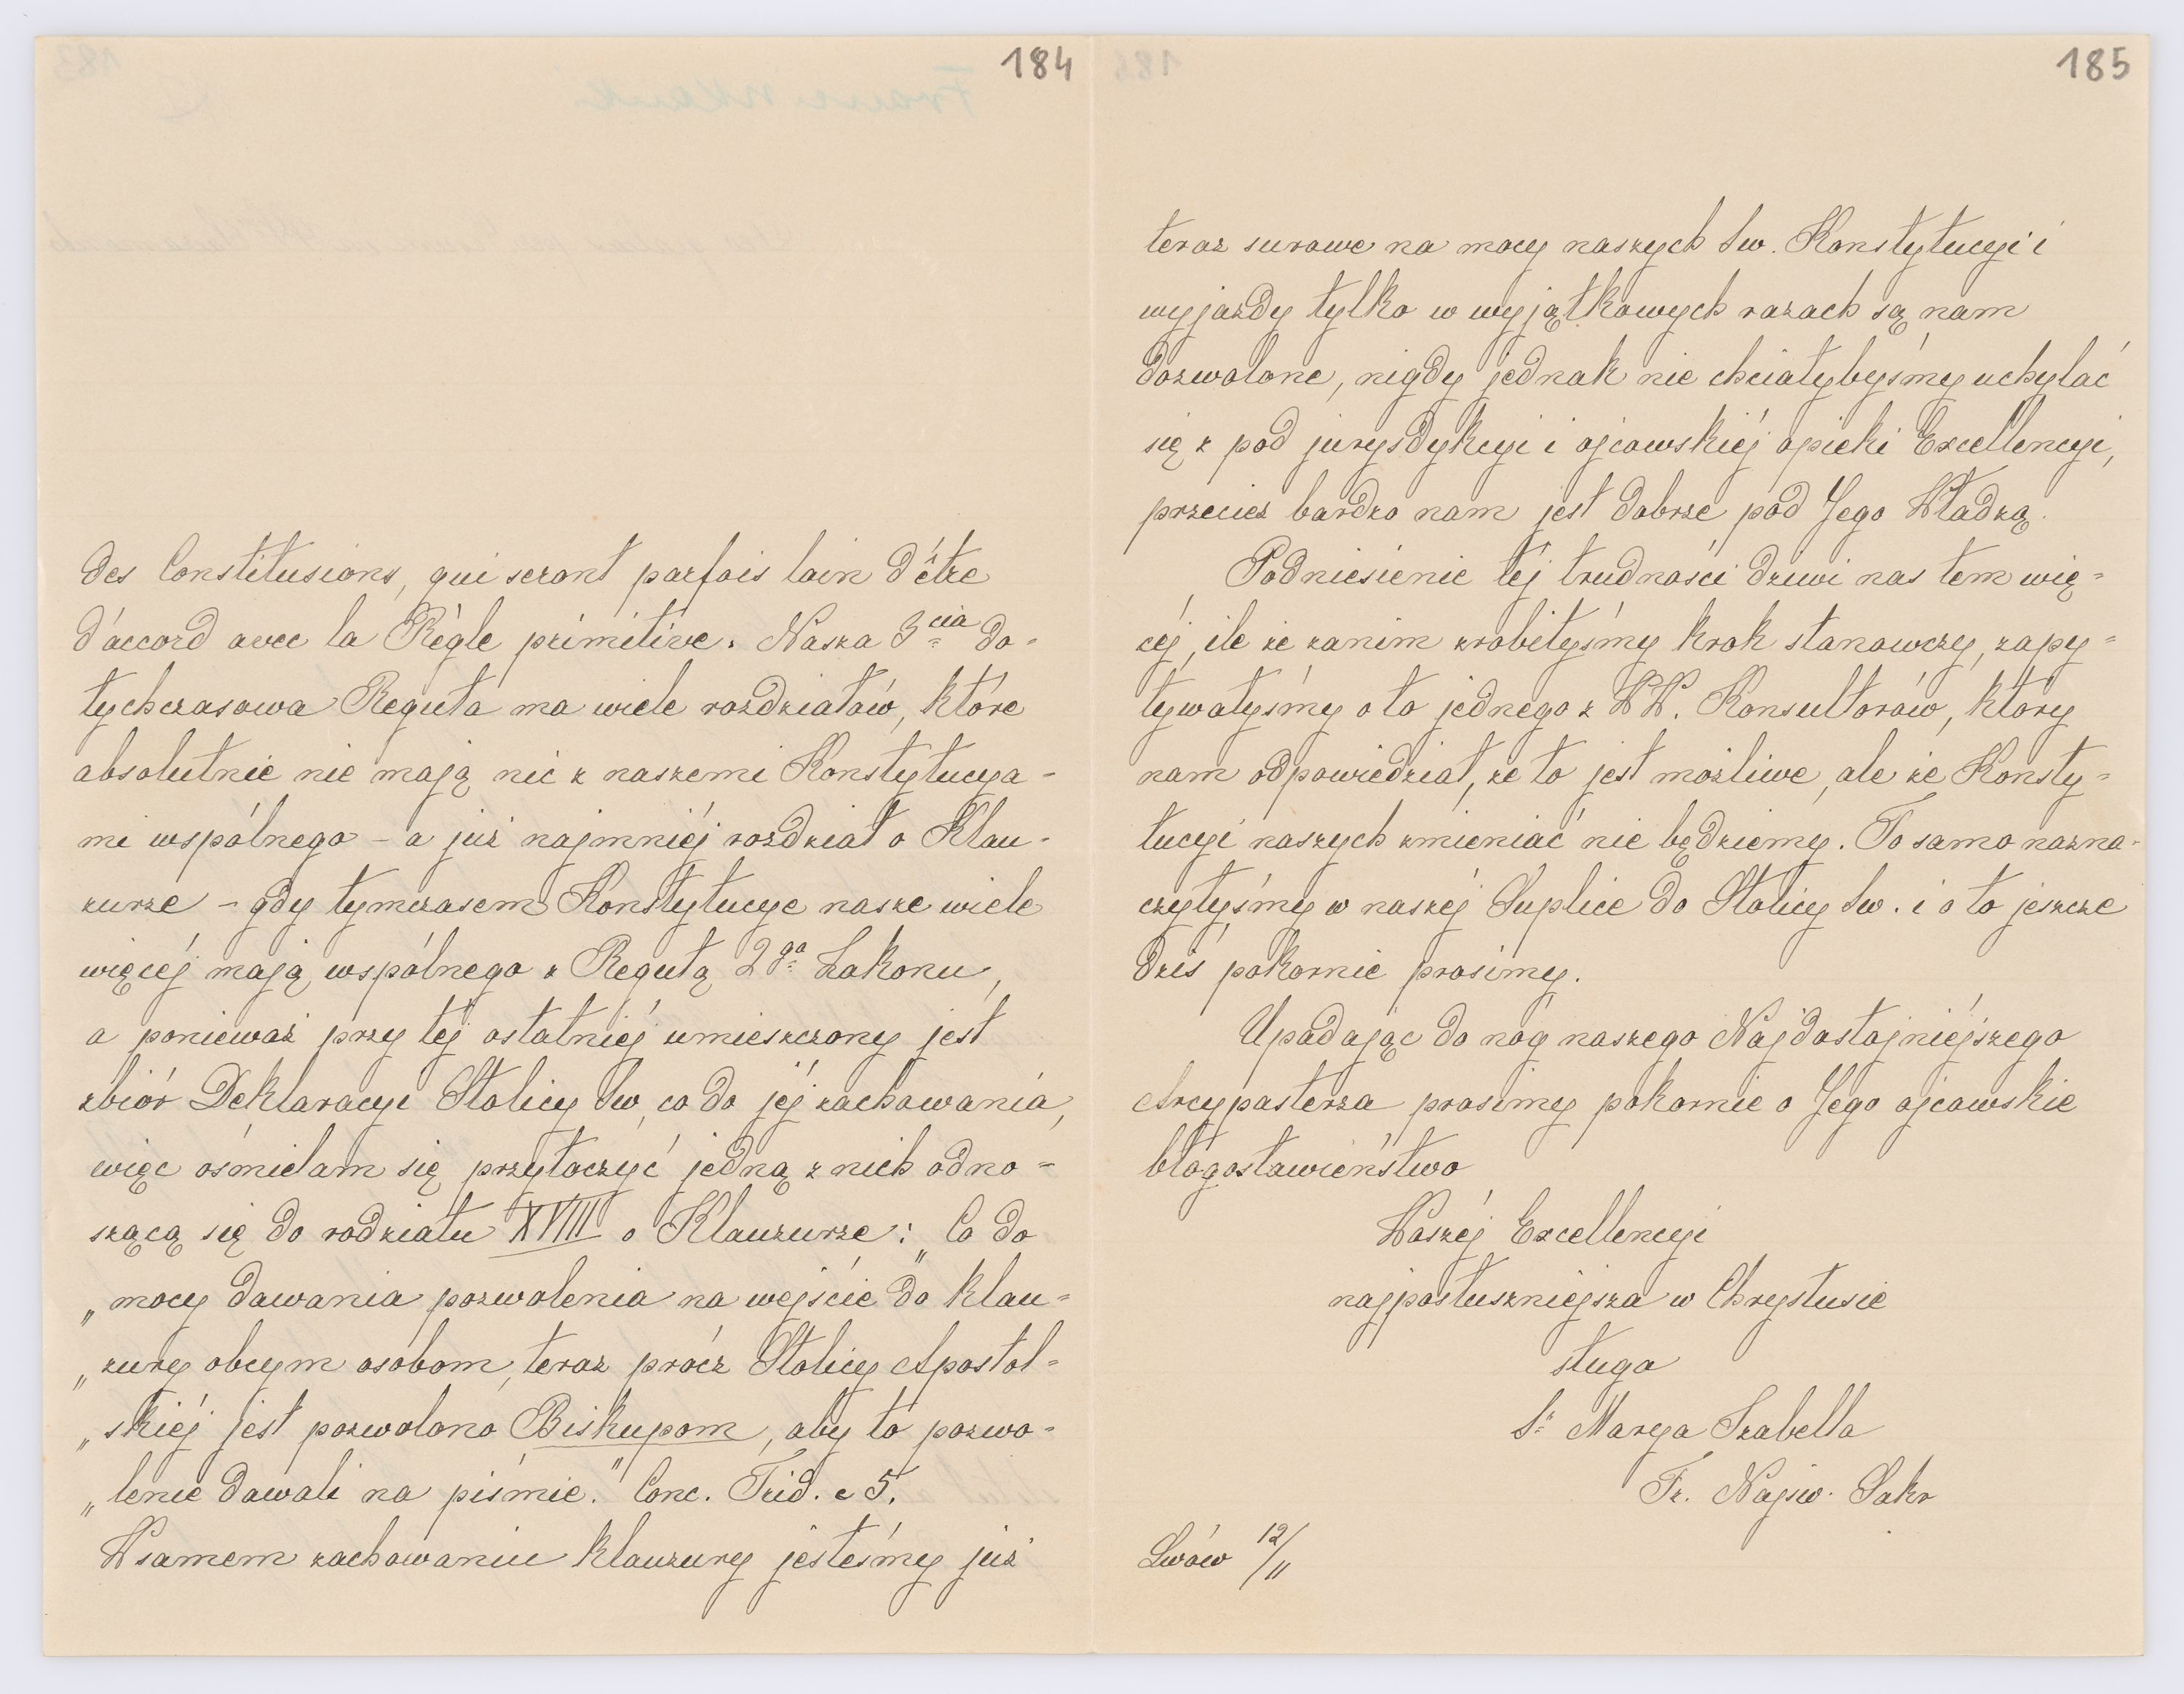 184
des Constitusions, qui seront parfois loin d'être
d'accord avec la Règle primitive. Nasza 3cia do-
tychczasowa Reguła ma wiele rozdziałów, które
absolutnie nie mają nic z naszemi Konstytucya-
mi wspólnego – a już najmniéj rozdział o Klau-
zurze – gdy tymczasem Konstytucye nasze wiele
więcéj mają wspólnego z Regułą 2go Zakonu,
a ponieważ przy téj ostatniéj umieszczony jest
zbiór Deklaracyi Stolicy Św, co do jéj zachowania,
więc ośmielam się przytoczyć jedną z nich odno-
szącą się do rodziału XVIII o Klauzurze: „Co do
„mocy dawania pozwolenia na wejście do klau-
„zury obcym osobom, teraz prócz Stolicy Apostol-
„skiéj jest pozwolono Biskupom, aby to pozwo-
„lenie dawali na piśmie." Conc. Trid. c 5.
W samem zachowaniu klauzury jesteśmy już
185
teraz surowe na mocy naszych Św. Konstytucyi i
wyjazdy tylko w wyjątkowych razach są nam
dozwolone, nigdy jednak nie chciałybyśmy uchylać
się z pod jurysdykcyi i ojcowskiéj opieki Excellencyi,
przecież bardzo nam jest dobrze pod Jego Władzą.
Podniesienie téj trudności dziwi nas tem wię-
céj, ile że zanim zrobiłyśmy krok stanowczy, zapy-
tywałyśmy o to jednego z WW. Konsultorów, który
nam odpowiedział, że to jest możliwe, ale że Konsty-
tucyi naszych zmieniać nie będziemy. To samo nazna-
czyłyśmy w naszéj Suplice do Stolicy Św. i o to jeszcze
dziś pokornie prosimy.
Upadając do nóg naszego Najdostojniéjszego
Arcypasterza prosimy pokornie o Jego ojcowskie
błogosławieństwo
Waszéj Excellencyi
najposłuszniejsza w Chrystusie
sługa
Sr. Marya Izabella
Fr. Najsw. Sakr
Lwów 12/11